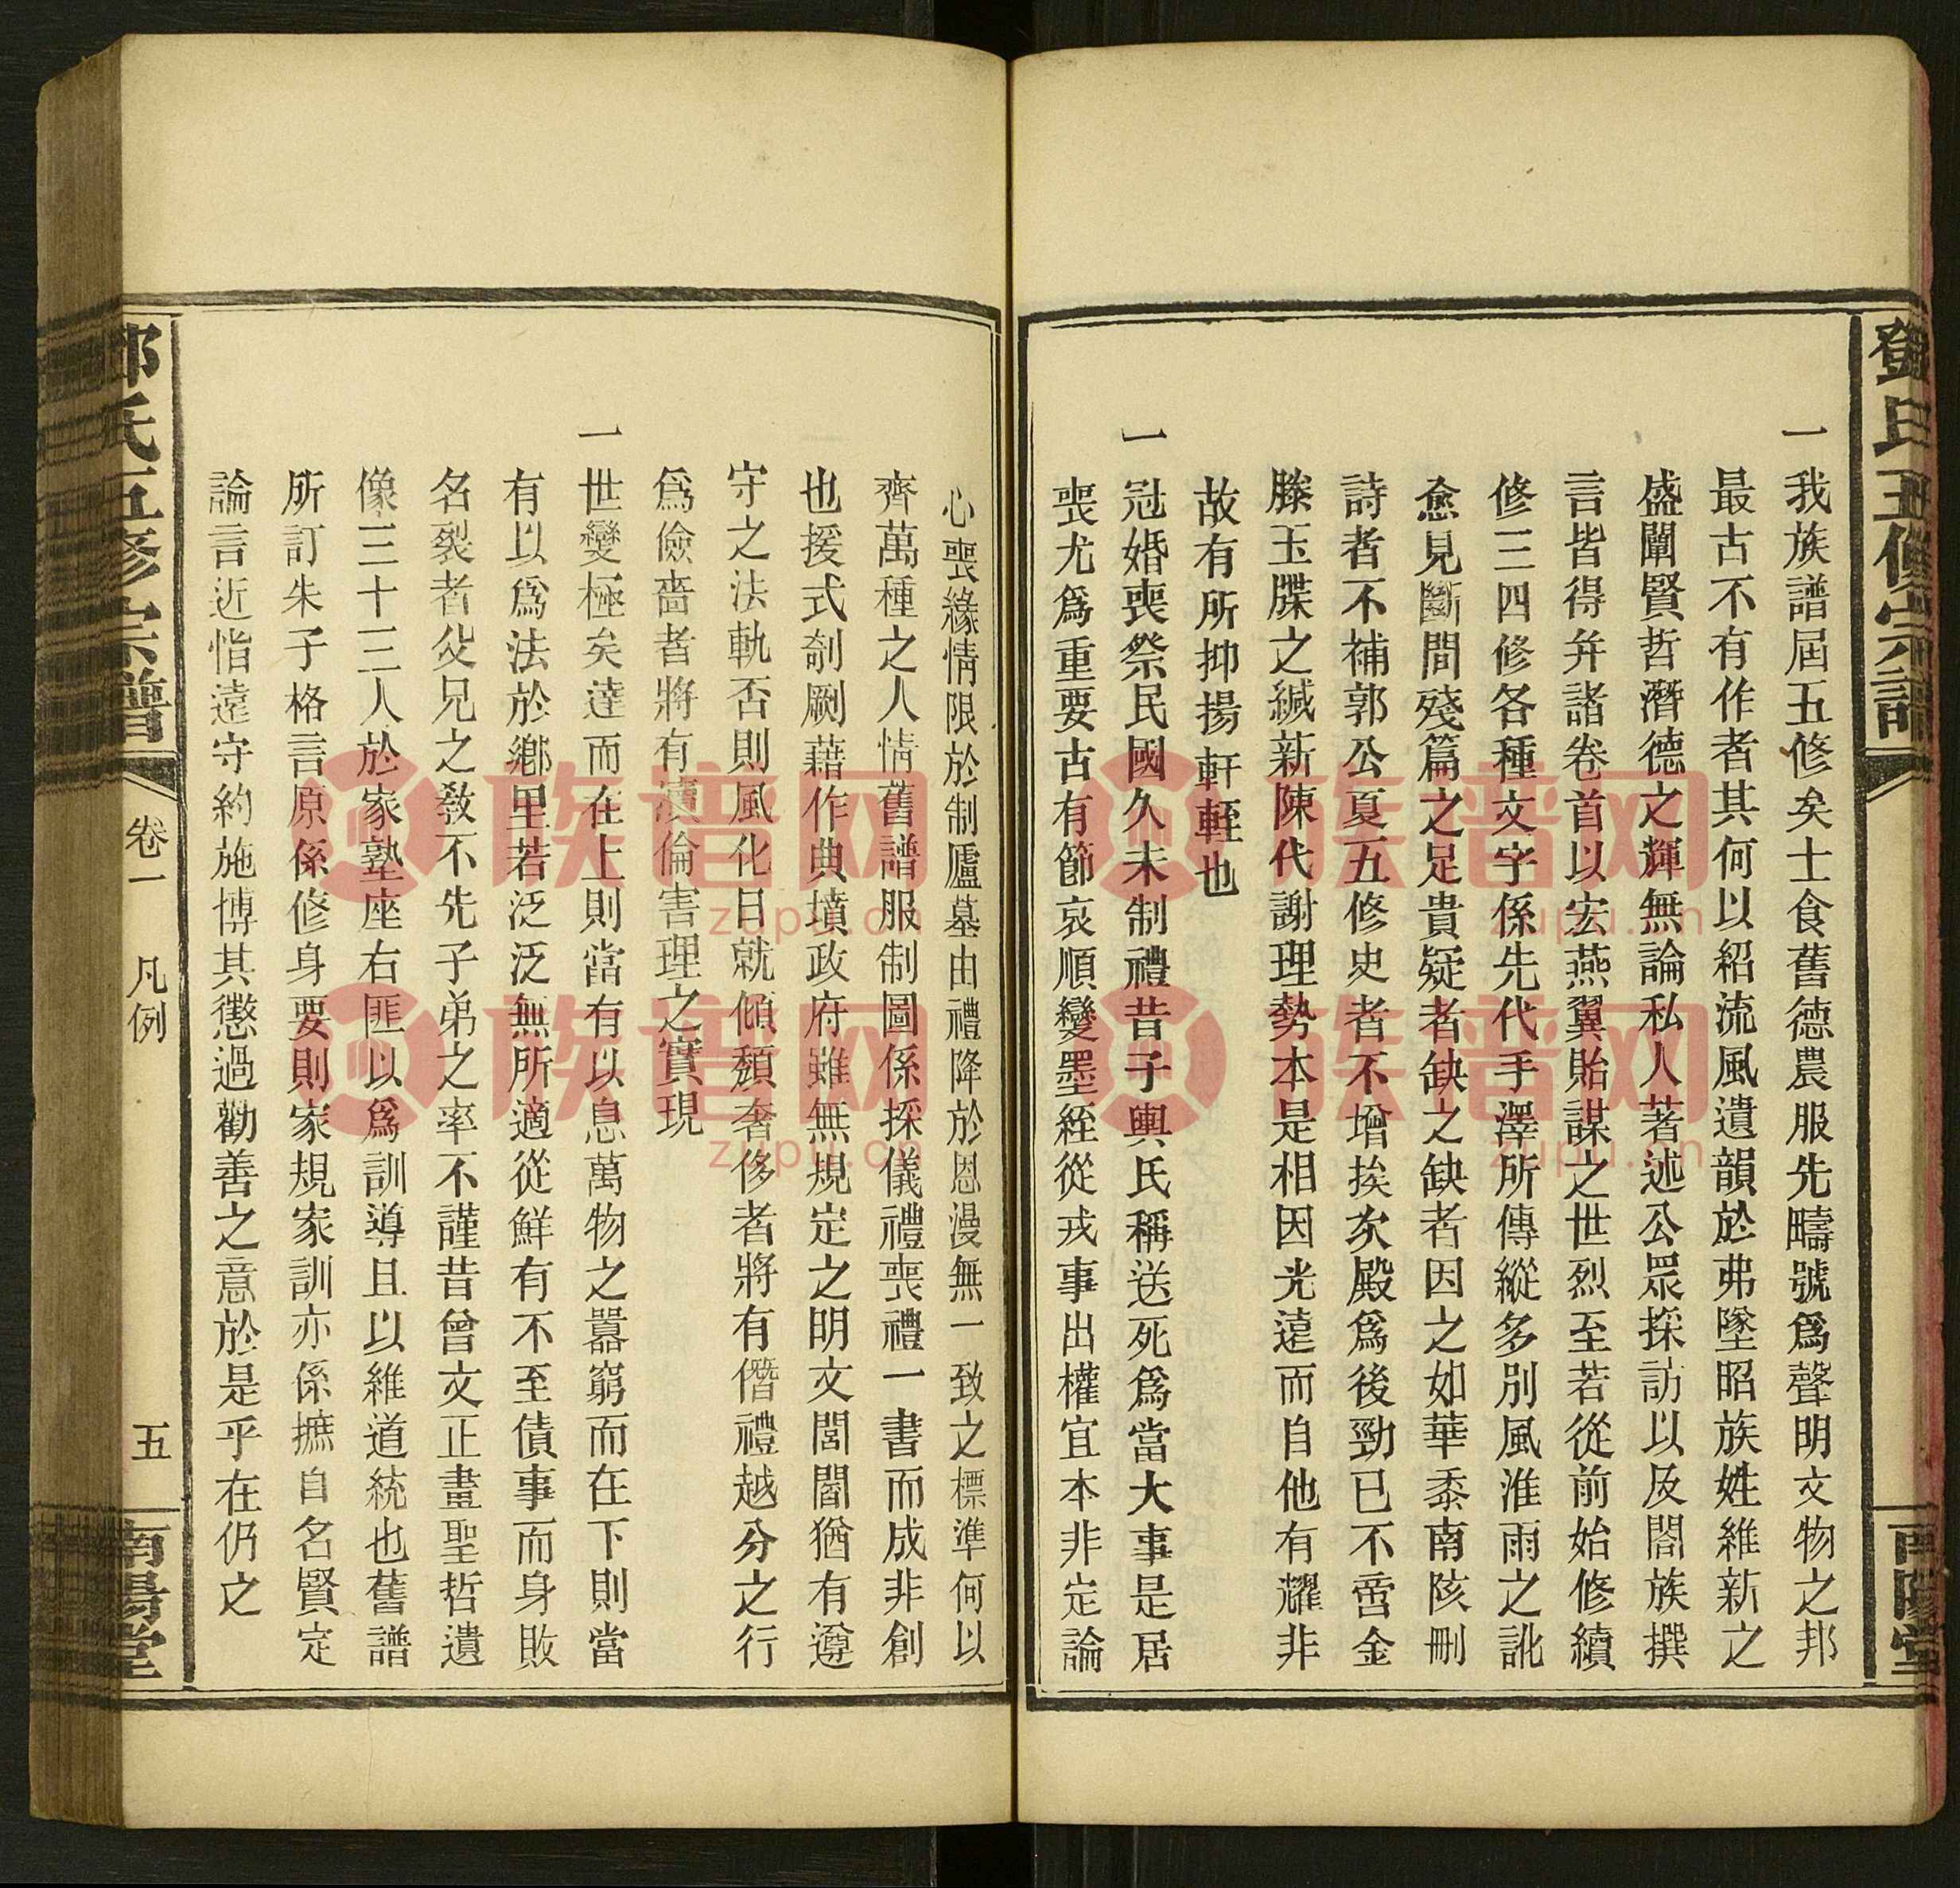 鄧氏五修宗譜
南陽堂
一我族譜屆五修矣士食舊德農服先疇號爲聲明文物之邦
最古不有作者其何以紹流風遺韻於弗墜昭族姓維新之
盛闡賢哲潛德之輝無論私人著述公眾採訪以及閤族撰
言皆得弁諸卷首以宏燕翼貽謀之世烈至若從前始修續
修三四修各種文字係先代手澤所傳縱多別風淮雨之訛
愈見斷間殘篇之足貴疑者缺之缺者因之如華黍南陔刪
詩者不補郭公夏五修史者不增挨次殿爲後勁已不啻金
縢玉牒之緘新陳代謝理勢本是相因光遠而自他有耀非
故有所抑揚軒輊也
一冠婚喪祭民國久未制禮昔子輿氏稱送死爲當大事是居
喪尤爲重要古有節哀順變墨絰從戎事出權宜本非定論
心喪緣情限於制廬墓由禮降於恩漫無一致之標準何以
齊萬種之人情舊譜服制圖係採儀禮喪禮一書而成非創
也援式剞劂藉作典墳政府雖無規定之明文閭閻猶有遵
守之法軌否則風化日就傾頹奢侈者將有僭禮越分之行
爲儉嗇者將有瀆倫害理之實現
一世變極矣達而在上則當有以息萬物之囂窮而在下則當
有以爲法於鄉里若泛泛無所適從鮮有不至僨事而身敗
名裂者父兄之教不先子弟之率不謹昔曾文正畫聖哲遺
像三十三人於家塾座右匪以爲訓導且以維道統也舊譜
所訂朱子格言原係修身要則家規家訓亦係摭自名賢定
論言近恉遠守約施博其懲過勸善之意於是乎在仍之
鄧氏五修宗譜
卷一 凡例
五
南陽堂
族譜网
zupu.cn
族譜网
zupu.cn
族譜网
zupu.cn
族譜网
zupu.cn